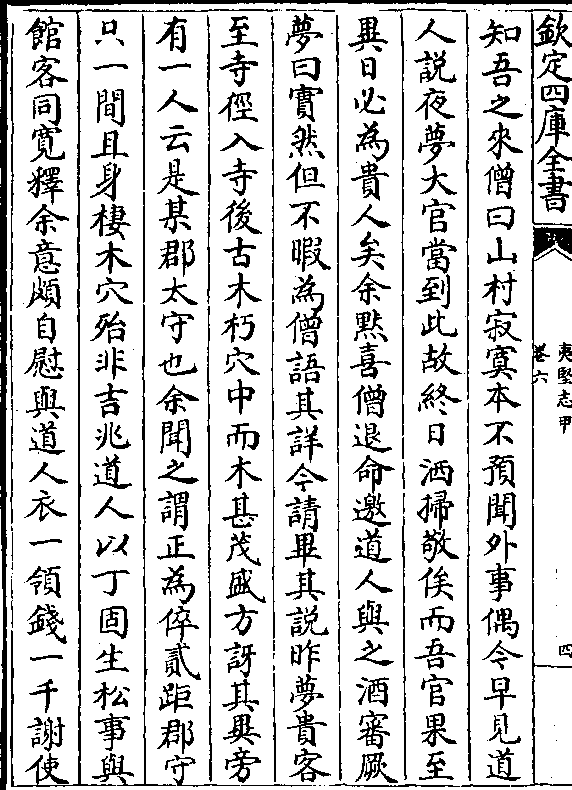 欽定四庫全書
夷堅志甲
卷六
四
知吾之來僧曰山村寂寞本不預聞外事偶今早見道
人說夜夢大官當到此故終日洒掃敬俟而吾官果至
異日必為貴人矣余黙喜僧退命邀道人與之酒審厥
夢曰實然但不暇為僧語其詳今請畢其說昨夢貴客
至寺徑入寺後古木朽穴中而木甚茂盛方訝其異旁
有一人云是某郡太守也余聞之謂正為倅貳距郡守
只一間且身棲木穴殆非吉兆道人以丁固生松事與
館客同寛釋余意頗自慰與道人衣一領錢一千謝使